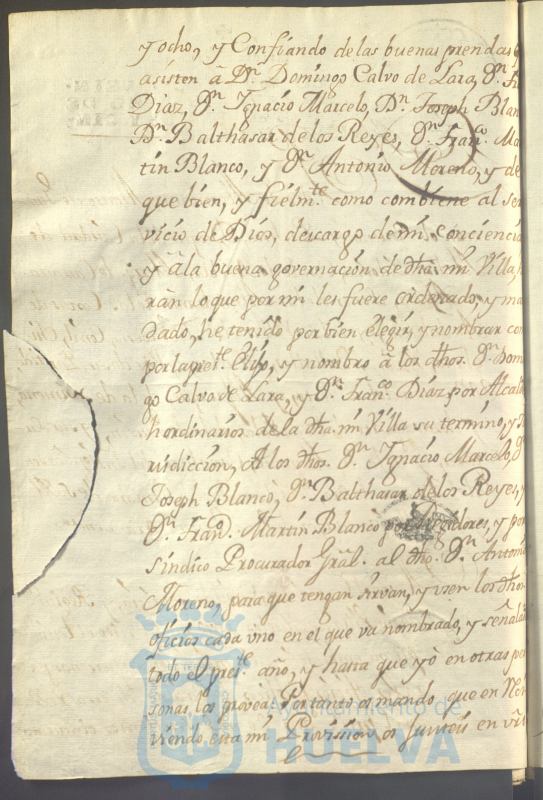 y ocho, y Confiando de las buenas prendas q
asisten à Dn. Domingo Calvo de Lara, Dn. Fr
Diaz, Dn. Ignacio Marcelo, Dn. Joseph Blan
Dn. Balthasar de los Reyes, Dn. Franco. Mar
tin Blanco, y Dn. Antonio Moreno, y de
que bien, y fielmte. como combiene al ser
vicio de Dios, descargo de mi Conciencia
y à la buena governacion de dha. mi Villa, h
ràn lo que por mi les fuere ordenado, y man
dado, he tenido por bien elegir, y nombrar com
por la prete. Elijo, y nombro à los dhos. Dn. Domin
go Calvo de Lara, y Dn. Franco. Diaz por Alcald
hordinarios de la dha. mi Villa su termino, y Ju
risdiccion, A los dhos. Dn. Ignacio Marcelo, Dn
Joseph Blanco, Dn. Balthasar de los Reyes, y
Dn. Franco. Martin Blanco por Regidores, y por
sindico Procurador Gràl. al dho. Dn. Antonio
Moreno, para que tengan sirvan, y usen los dhos
oficios cada uno en el que và nombrado, y señalado
todo el prete. año, y hasta que yò en otras per
sonas los provea: Portanto os mando, que en Reci
viendo esta mi Provission os Junteis en vro
Ayuntamiento de
HUELVA